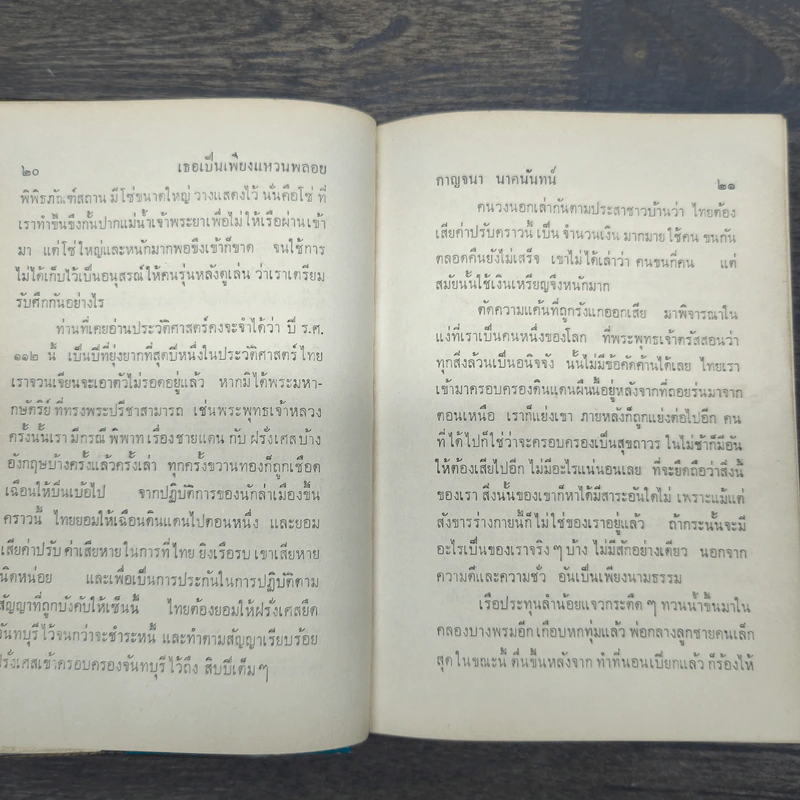 ๒๐ เธอเป็นเพียงแหวนพลอย
พิพิธภัณฑ์สถาน มีโซ่ขนาดใหญ่ วางแสดงไว้ นั่นคือโซ่ ที่
เราทำขึ้นขึงกั้นปากแม่น้ำเจ้าพระยาเพื่อไม่ให้เรือผ่านเข้า
มา แต่โซ่ใหญ่และหนักมากพอขึงเข้าก็ขาด จนใช้การ
ไม่ได้เก็บไว้เป็นอนุสรณ์ให้คนรุ่นหลังดูเล่น ว่าเราเตรียม
รับศึกกันอย่างไร
ท่านที่เคยอ่านประวัติศาสตร์คงจะจำได้ว่า ปี ร.ศ.
๑๑๒ นี้ เป็นปีที่ยุ่งยากที่สุดปีหนึ่งในประวัติศาสตร์ไทย
เราจวนเจียนจะเอาตัวไม่รอดอยู่แล้ว หากมิได้พระมหา-
กษัตริย์ ที่ทรงพระปรีชาสามารถ เช่นพระพุทธเจ้าหลวง
ครั้งนั้นเรา มีกรณี พิพาท เรื่องชายแดน กับ ฝรั่งเศสบ้าง
อังกฤษบ้างครั้งแล้วครั้งเล่า ทุกครั้งขวานทองก็ถูกเชือด
เฉือนให้บิ่นเบ้อไป จากปฏิบัติการของนักล่าเมืองขึ้น
คราวนี้ ไทยยอมให้เฉือนดินแดนไปตอนหนึ่ง และยอม
เสียค่าปรับ ค่าเสียหาย ในการที่ไทย ยิงเรือรบ เขาเสียหาย
นิดหน่อย และเพื่อเป็นการประกันในการปฏิบัติตาม
สัญญาที่ถูกบังคับให้เซ็นนี้ ไทยต้องยอมให้ฝรั่งเศสยึด
จันทบุรี ไว้จนกว่าจะชำระหนี้ และทำตามสัญญาเรียบร้อย
ฝรั่งเศสเข้าครอบครองจันทบุรี ไว้ถึง สิบปีเต็มๆ
กาญจนา นาคนันทน์ ๒๑
คนวงนอกเล่ากันตามประสาชาวบ้านว่า ไทยต้อง
เสียค่าปรับคราวนี้ เป็น จำนวนเงิน มากมาย ใช้คน ขนกัน
ตลอดคืนยังไม่เสร็จ เขาไม่ได้เล่าว่า คนขนกี่คน แต่
สมัยนั้นใช้เงินเหรียญจึงหนักมาก
ตัดความแค้นที่ถูกรังแกออกเสีย มาพิจารณาใน
แง่ที่เราเป็นคนหนึ่งของโลก ที่พระพุทธเจ้าตรัสสอนว่า
ทุกสิ่งล้วนเป็นอนิจจัง นั้นไม่มีข้อคัดค้านได้เลย ไทยเรา
เข้ามาครอบครองดินแดนผืนนี้อยู่หลังจากที่ถอยร่นมาจาก
ตอนเหนือ เราก็แย่งเขา ภายหลังก็ถูกแย่งต่อไปอีก คน
ที่ ได้ ไปก็ใช่ว่าจะครอบครองเป็นสุขถาวร ในไม่ช้าก็มีอัน
ให้ต้องเสียไปอีก ไม่มีอะไรแน่นอนเลย ที่จะยึดถือว่าสิ่งนี้
ของเรา สิ่งนั้นของเขาก็หาได้มีสาระอันใดไม่ เพราะแม้แต่
สังขารร่างกายนี้ก็ไม่ใช่ของเราอยู่แล้ว ถ้ากระนั้นจะมี
อะไรเป็นของเราจริงๆ บ้าง ไม่มีสักอย่างเดียว นอกจาก
ความดีและความชั่ว อันเป็นเพียงนามธรรม
เรือประทุนลำน้อยแจวกระดึดๆ ทวนน้ำขึ้นมาใน
คลองบางพรมอีก เกือบหกทุ่มแล้ว พ่อกลางลูกชายคนเล็ก
สุด ในขณะนี้ ตื่นขึ้นหลังจาก ทำที่นอนเปียกแล้ว ก็ร้องไห้